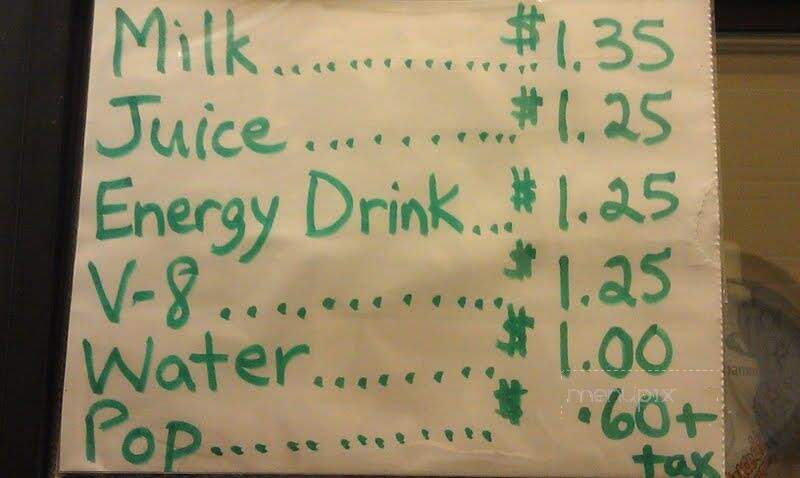 Milk................$1.35
Juice..........$1.25
Energy Drink...$1.25
V-8.............$1.25
Water.........$1.00
Pop..............$.60+
tax
menupix